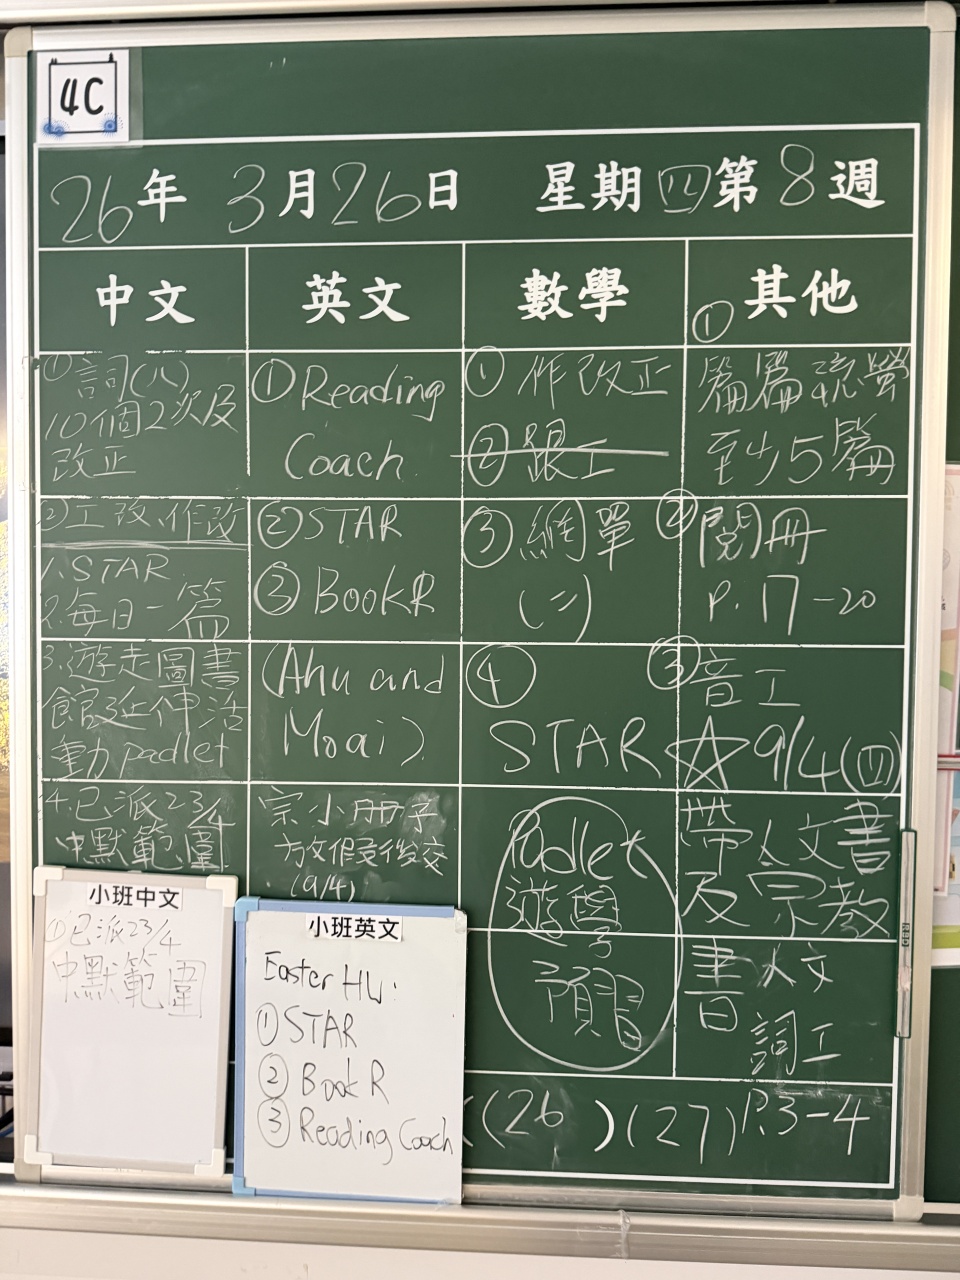 4C
26年 3月26日 星期四第8週
中文
①詞(八)
10個2次及
改正
②工改、作改
1. STAR
2. 每日一篇
3. 遊走圖書
館延伸活
動 padlet
4. 已派23/4
中默範圍
英文
①Reading
Coach
②STAR
③BookR
(Ahu and
Moai)
宗小冊子
放假後交
(9/4)
數學
①作改正
②跟工
③網單
(二)
④
STAR
Padlet
遊學
預習
其他
①
篇篇流螢
至少5篇
②閱冊
P.17-20
③音工
☆9/4(四)
帶人文書
及宗教
書
人文
詞工
(26)(27)P.3-4
小班中文
①已派23/4
中默範圍
小班英文
Easter HW:
①STAR
②Book R
③Reading Coach